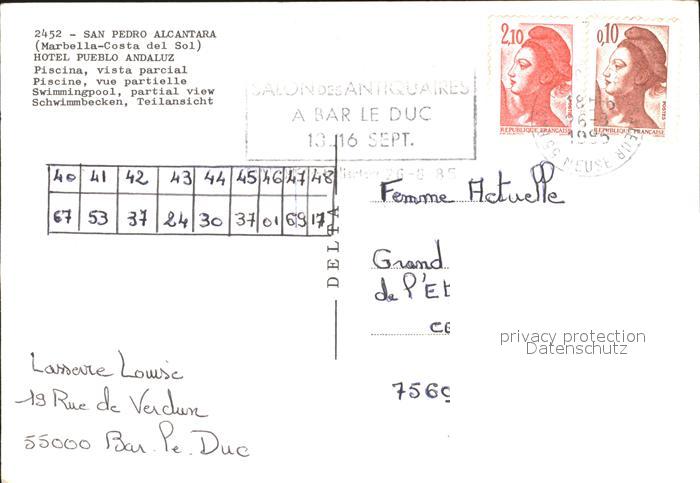 2452 - SAN PEDRO ALCANTARA
(Marbella-Costa del Sol)
HOTEL PUEBLO ANDALUZ
Piscina, vista parcial
Piscine, vue partielle
Swimmingpool, partial view
Schwimmbecken, Teilansicht
SALON DES ANTIQUAIRES
A BAR LE DUC
13.16 SEPT.
26-8 85
2,10
POSTES
REPUBLIQUE FRANÇAISE
0,10
POSTES
REPUBLIQUE FRANÇAISE
1985
55 MEUSE
40 41 42 43 44 45 46 47 48
67 53 37 24 30 37 01 69 17
DELTA
Femme Actuelle
Grand
de l'Et
7569
privacy protection
Datenschutz
Lasserre Louise
19 Rue de Verdun
55000 Bar. Le. Duc